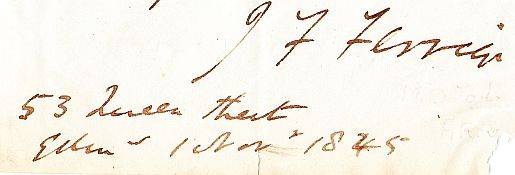 J F Ferrier
53 Queen Street
Edinr 1 Novr 1845